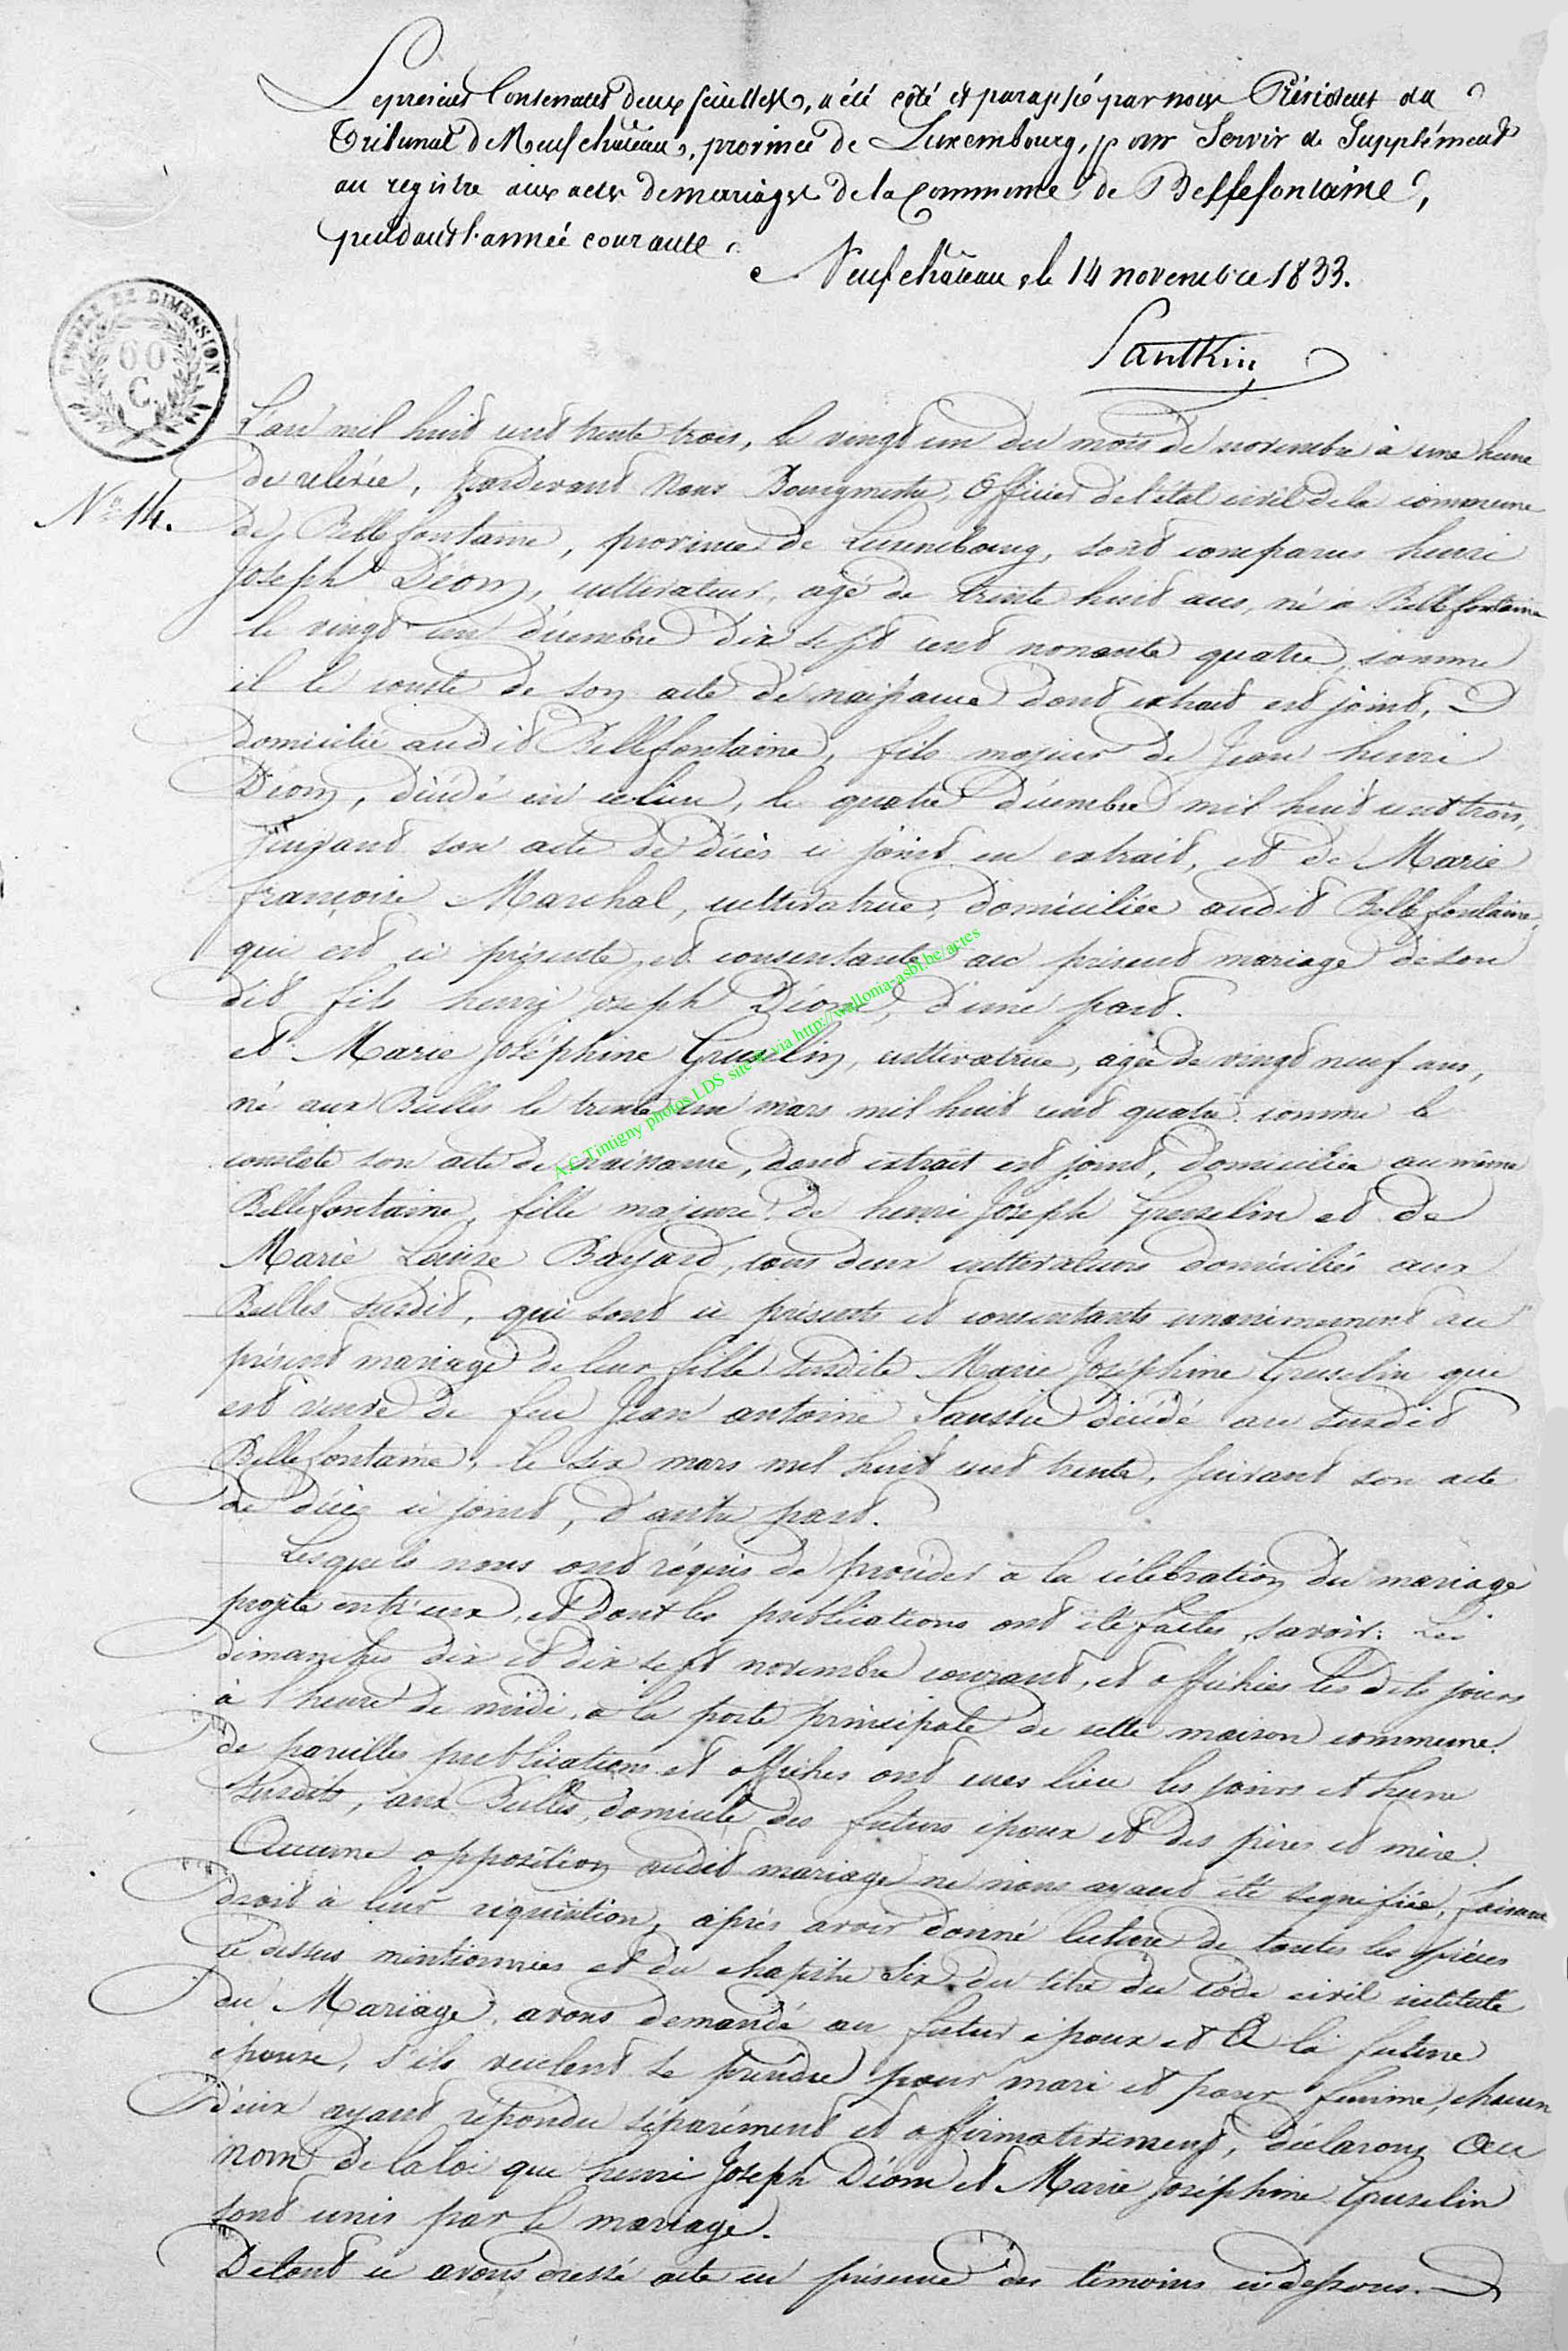 Le présent contenant deux feuillets, a été coté et paraphé par nous Président du
Tribunal de Neufchâteau, province de Luxembourg, pour Servir de Supplément
au registre aux actes de mariages de la Commune de Bellefontaine,
pendant l'année courante.
Neufchâteau, le 14 novembre 1833.
Santkin
TIMBRE DE DIMENSION
60
C.
N° 14.
L'an mil huit cent trente trois, le vingt un du mois de novembre à une heure
de relevée, Pardevant Nous Bourgmestre, Officier de l'état civil de la commune
de Bellefontaine, province de Luxembourg, sont comparus henri
Joseph Déom, cultivateur, agé de trente huit ans, né a Bellefontaine
le vingt un décembre dix sept cent nonante quatre, comme
il le conste de son acte de naissance dont extrait est joint,
domicilié audit Bellefontaine, fils majeur de Jean henri
Déom, décédé en ce lieu, le quatre décembre mil huit cent trois,
suivant son acte de décès ci joint en extrait, et de Marie
françoise Marchal, cultivatrice, domiciliée audit Bellefontaine,
qui est ci présente et consentante au présent mariage de son
dit fils henry Joseph Déom, d'une part.
et Marie Joséphine Gruselin, cultivatrice, agée de vingt neuf ans,
né aux Bulles le trente un mars mil huit cent quatre comme le
constate son acte de naissance, dont extrait est joint, domiciliée au même
Bellefontaine, fille majeure de henri Joseph Gruselin et de
Marie Louise Bayard, tous deux cultivateurs domiciliés aux
Bulles susdit, qui sont ci présents et consentants unanimement au
présent mariage de leur fille susdite Marie Joséphine Gruselin qui
est veuve de feu Jean antoine décédé au susdit
Bellefontaine, le six mars mil huit cent trente, suivant son acte
de décès ci joint, d'autre part.
Lesquels nous ont requis de procéder à la célébration du mariage
projeté entr'eux, et dont les publications ont été faites, savoir: Les
dimanches dix et dix sept novembre courant, et affichées les dits jours
à l'heure de midi, a la porte principale de cette maison commune.
de pareilles publications et affiches ont eues lieu les jours et heure
susdits, aux Bulles, domicile des futurs époux et des pères et mère.
Aucune opposition audit mariage ne nous ayant été signifiée, faisant
droit à leur réquisition, après avoir donné lecture de toutes les pièces
ci dessus mentionnées et du chapitre Six du titre du code civil intitulé
du Mariage, avons demandé au futur époux et A la future
épouse, s'ils veulent se prendre pour mari et pour femme, chacun
d'eux ayant répondu séparément et affirmativement, déclarons Au
nom de la loi que henri Joseph Déom et Marie Joséphine Gruselin
sont unis par le mariage.
De tout ce avons dressé acte en présence des témoins ci dessous.
A.C.Tintigny photos LDS site & via http://wallonia-asbl.be/actes